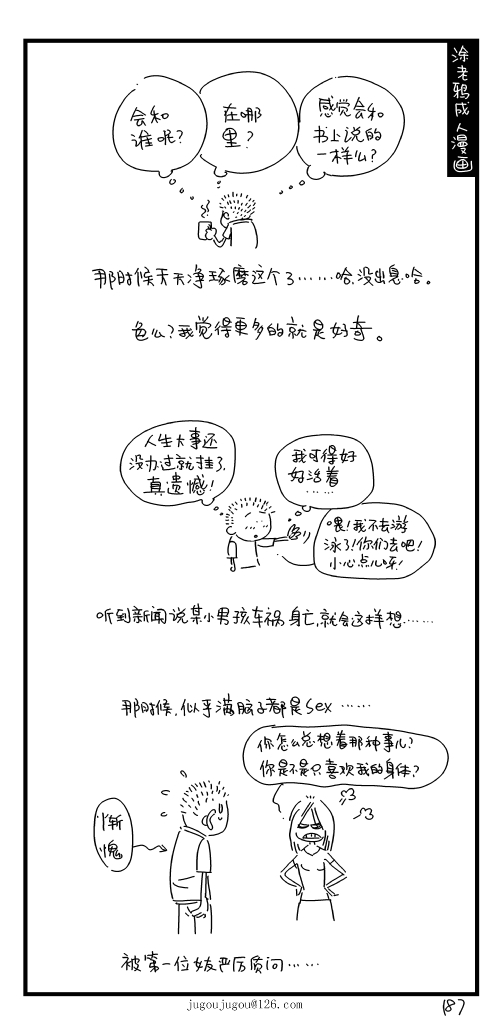 涂老鸦成人漫画
会和
谁呢?
在哪
里?
感觉会和
书上说的
一样么?
那时候天天净琢磨这个了……哈,没出息哈。
色么?我觉得更多的就是好奇。
人生大事还
没办过就挂了,
真遗憾!
我可得好
好活着
……
喂!我不去游
泳了!你们去吧!
小心点儿呀!
听到新闻说某小男孩车祸身亡,就会这样想……
那时候,似乎满脑子都是sex……
你怎么总想着那种事儿?
你是不是只喜欢我的身体?
惭
愧
被第一位女友严厉质问……
jugoujugou@126.com
187